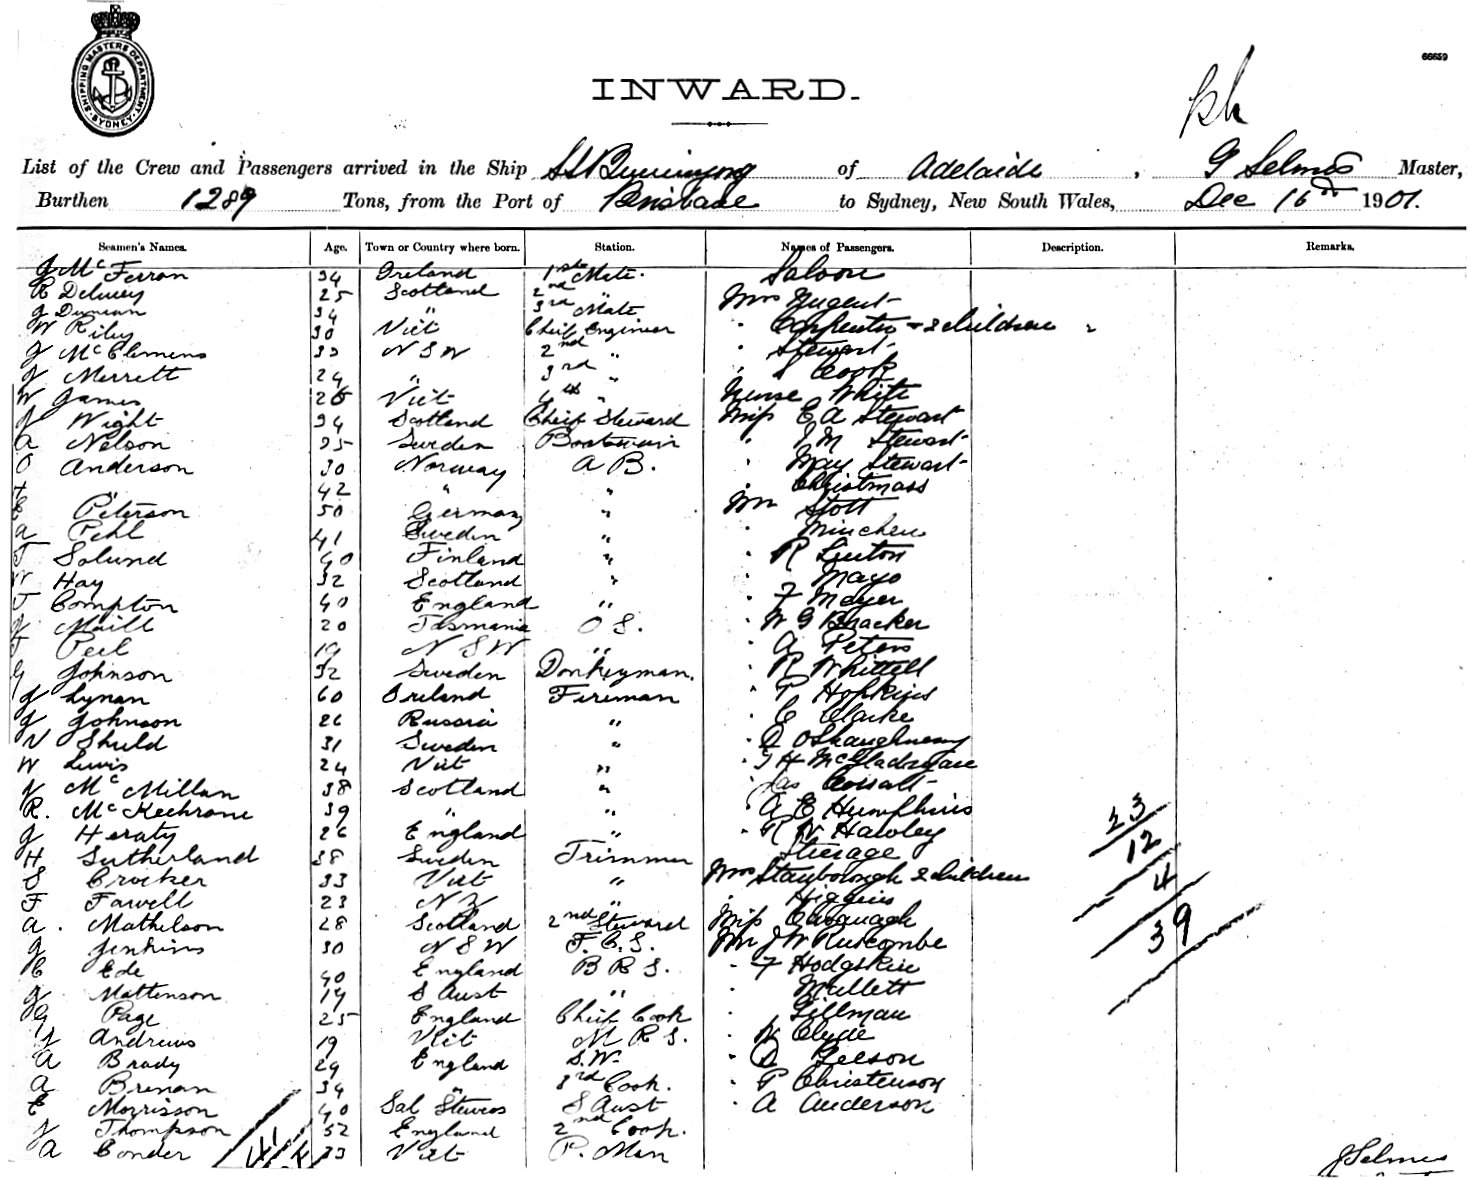 SHIPPING MASTERS DEPARTMENT SYDNEY
66659
INWARD.
List of the Crew and Passengers arrived in the Ship SS Buninyong of Adelaide, G Selmes Master,
Burthen 1289 Tons, from the Port of Brisbane to Sydney, New South Wales, Dec 16th 1901.
Seamen's Names. Age. Town or Country where born. Station. Names of Passengers. Description. Remarks.
J McFerran 34 Ireland 1st Mate. Saloon
R 25 Scotland 2nd " Mrs Nugent
J Duncan 34 " 3rd Mate " Carpenter & 2 children "
W Riley 30 Vict Cheif Engineer " Stewart
J McClemens 33 NSW 2nd " " S Cook
J Merrett 24 " 3rd " Nurse White
W James 26 Vict 4th " Miss E A Stewart
J Wight 34 Scotland Cheif Steward " J M Stewart
A Nelson 35 Sweden Boatswain " May Stewart
O Anderson 30 Norway A B. " Christmass
42 " " Mr Stott
E Peterson 50 Germany " " Minchen
A Pehl 41 Sweden " " R Linton
Solund 40 Finland " " Mayo
W Hay 32 Scotland " " F Meyer
Compton 40 England " " W G Bracker
Maill 20 Tasmania O S. " A Peters
Peel 19 N S W " " R Whittell
G Johnson 32 Sweden Donkeyman. " Hopkins
J Lynan 60 Ireland Fireman " E Clarke
J Johnson 26 Russia " " D OShaughnessy
N Shuld 31 Sweden "
W Lewis 24 Vict " " Jas
J McMillan 38 Scotland " " A E Humphries
R. McKechrane 39 " " " R W Hawley
J Heraty 26 England " Steerage
H Sutherland 38 Sweden Trimmer Mrs Stanborough 2 children
S Crocker 33 Vict " " Higgins
F Farvell 23 N Z " Miss Cavanagh
A. Mathelson 28 Scotland 2nd Steward Mr J W Ruscombe
J Jenkins 30 N S W F.C.S. " F Hodgskin
C Ede 40 England B R S. " Mullett
J Mattenson 19 S Aust " " Gillman
G Page 25 England Cheif Cook " W Clyde
J Andrews 19 Vict M R S. " D Beeson
A Brady 29 England S.W. " P Christenson
A Brenan 34 " 3rd Cook. " A Anderson
E Morrisson 40 Sal Stewess S Aust
J Thompson 52 England 2nd Cook.
A Conder 33 Vict P. Man
23
12
4
39
41
J Selmes